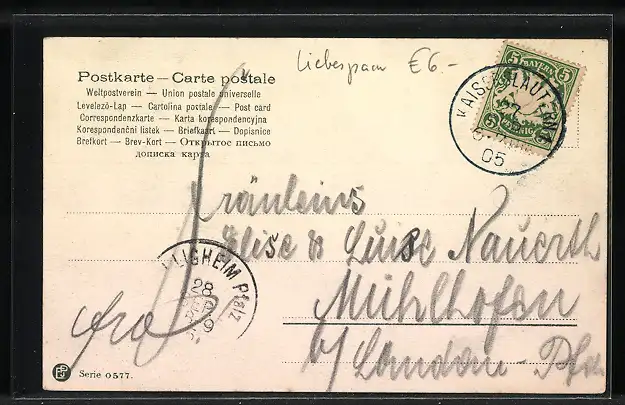 Liebespaar €6.-
Postkarte — Carte postale
Weltpostverein — Union postale universelle
Levelező-Lap — Cartolina postale — Post card
Correspondenzkarte — Karta korespondencyjna
Korespondenční lístek — Briefkaart — Dopisnice
Brefkort — Brev-Kort — Открытое письмо
дописна карта
5 BAYERN 5
5 PFENNIG 5
KAISERSLAUTERN
05
Fräuleins
Elise & Luise Nauerth
Mühlhofen
b/ Landau - Pfalz
LIGHEIM Pfalz
28
Serie 0577.